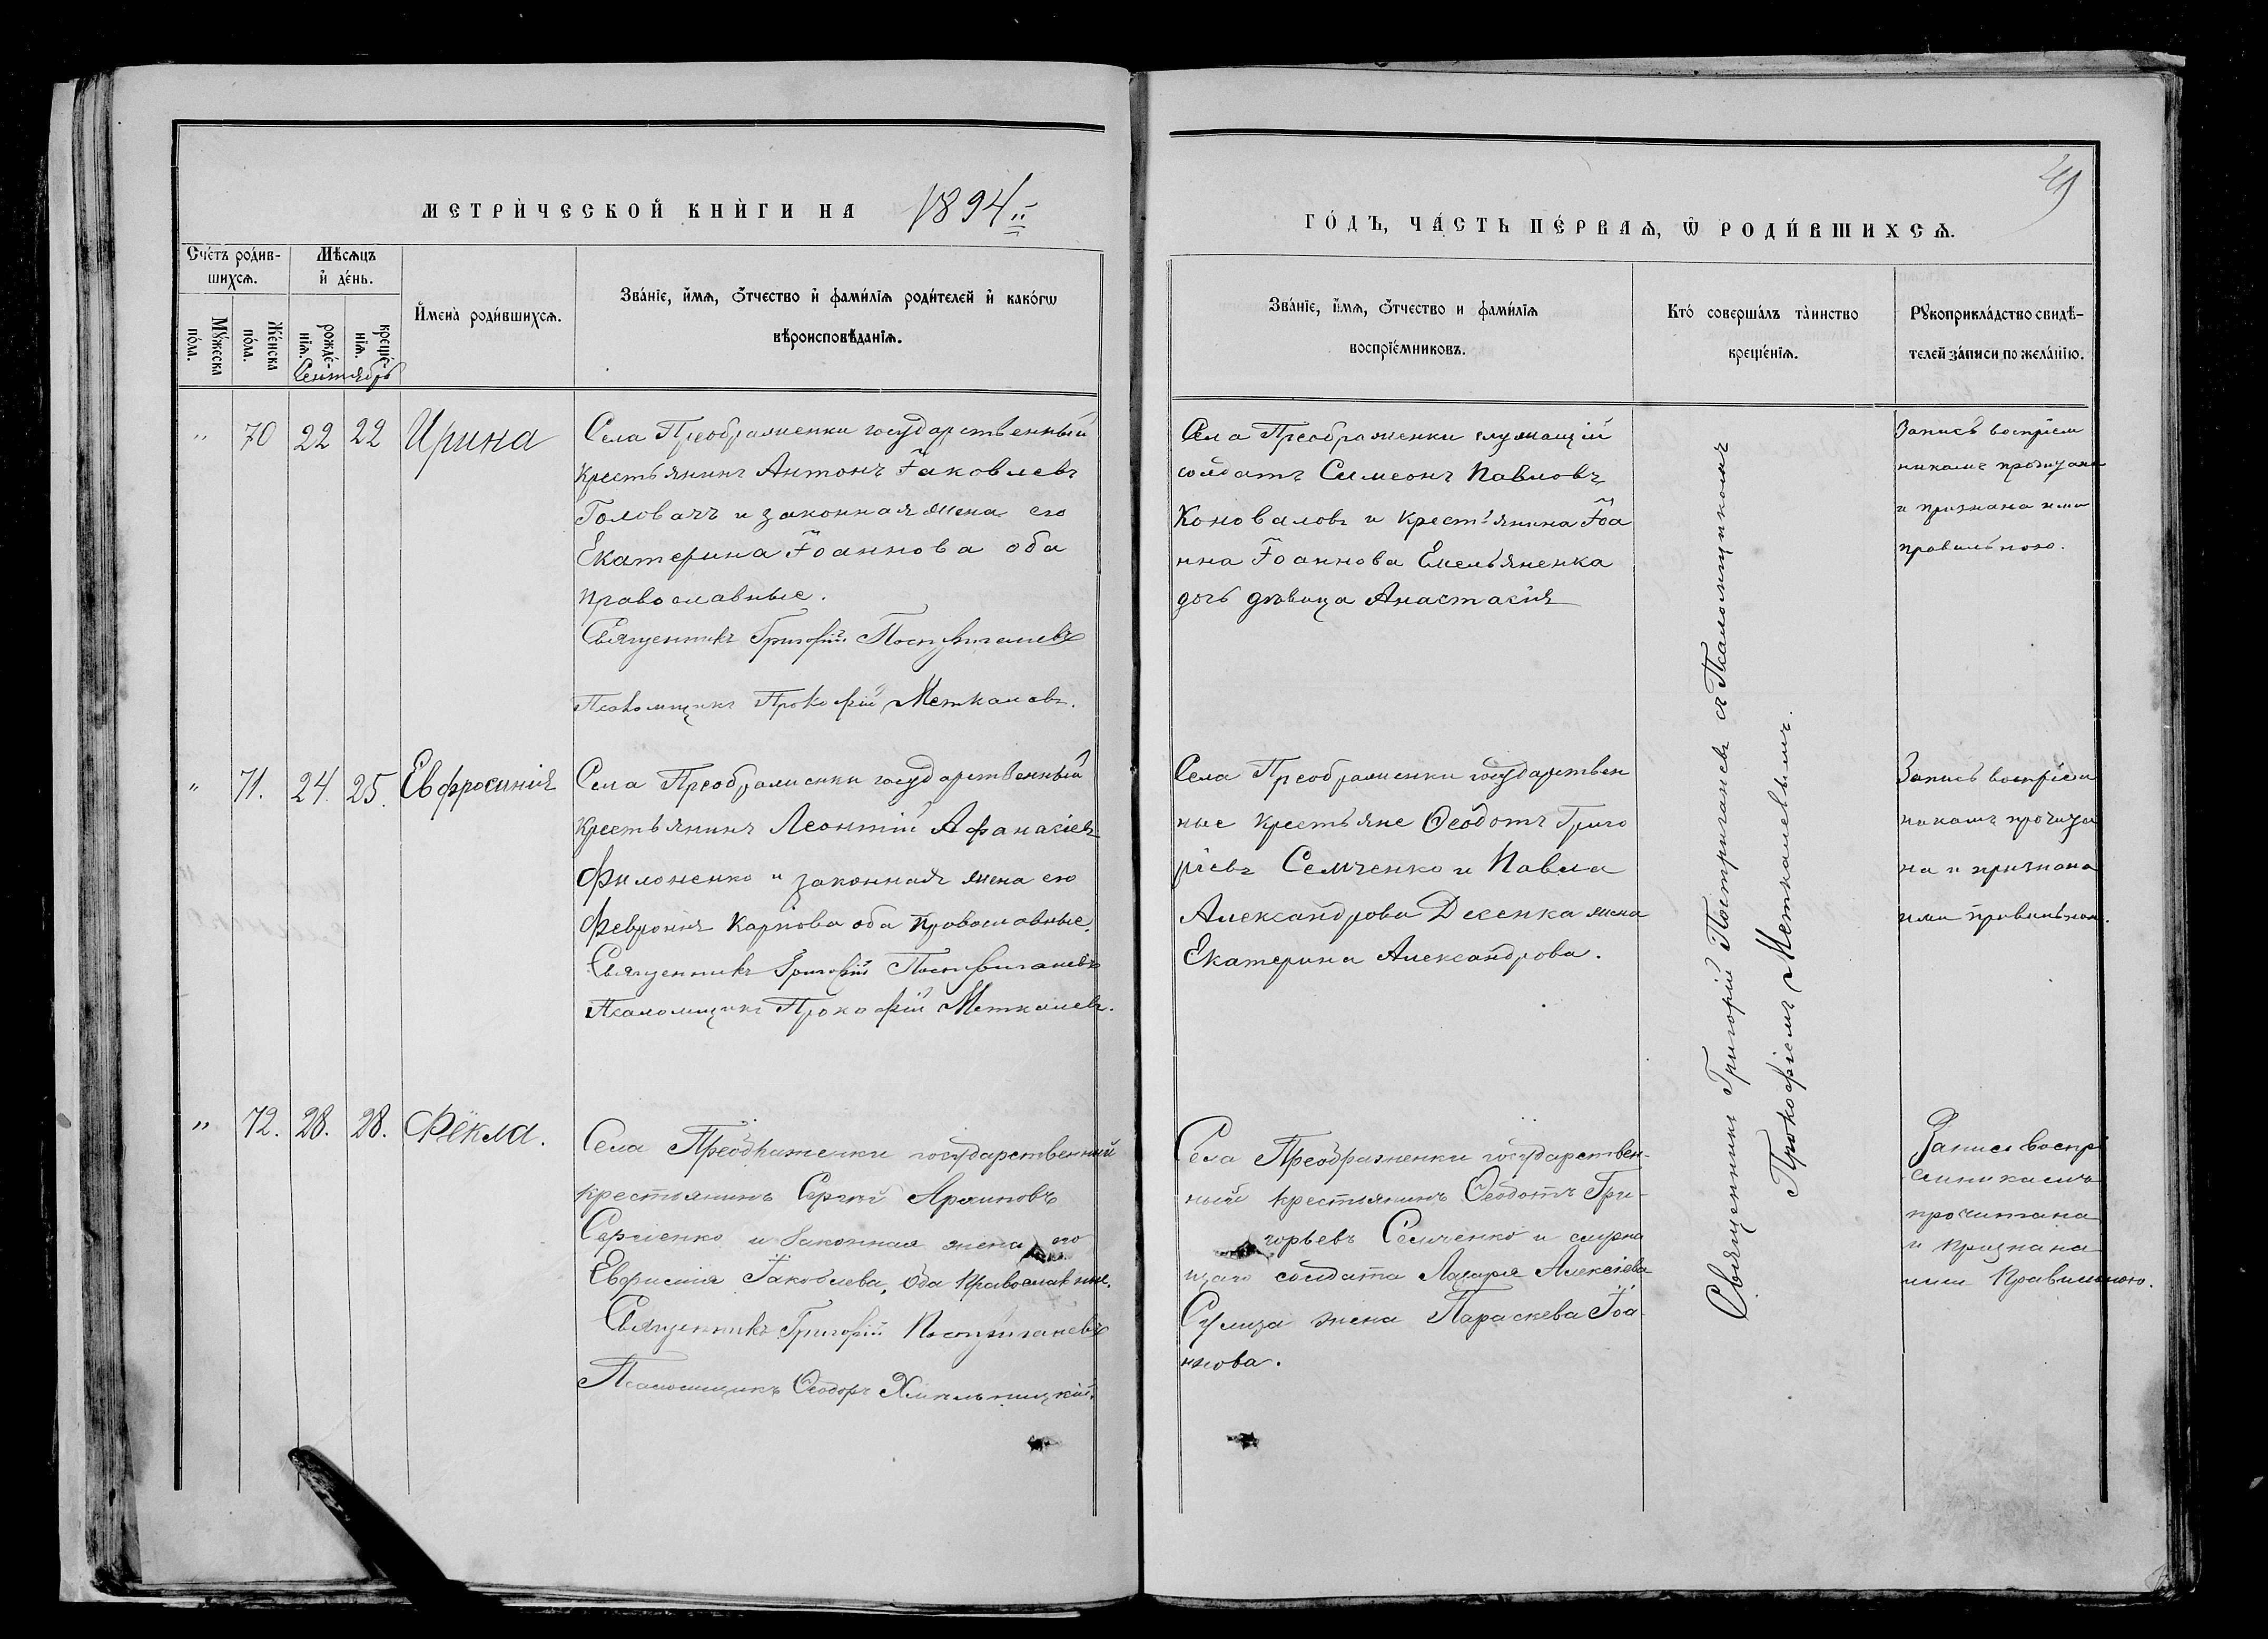 МЕТРИ́ЧЕСКОЙ КНИ́ГИ НА 1894
ГО́ДЪ, ЧА́СТЬ ПЕ́РВАѦ, Ѡ҆ РОДИ́ВШИХСѦ.
49
Сче́тъ роди́в-
шихсѧ.
Мꙋ́жеска
по́ла.
Же́нска
по́ла.
Мѣ́сѧцъ
и҆ де́нь.
рожде́-
нїѧ.
креще́-
нїѧ.
Сентябрь
И҆мена̀ роди́вшихсѧ.
Зва́нїе, и҆́мѧ, ѻ҆́тчество и҆ фами́лїѧ роди́телей и҆ како́гѡ
вѣроисповѣ́данїѧ.
Зва́нїе, и҆́мѧ, ѻ҆́тчество и фами́лїѧ
воспрїе́мниковъ.
Кто́ соверша́лъ та́инство
креще́нїѧ.
Рꙋкоприкла́дство свидѣ́-
телей за́писи по жела́нїю.
" 70 22 22 Ирина
Села Преображенки государственный
крестьянинъ Антонъ Іаковлевъ
Головачъ и законная жена его
Екатерина Іоаннова оба
православные.
Священникъ Григорій Постригачевъ
Псаломщикъ Прокофій Меткалевъ.
Села Преображенки служащій
солдатъ Симеонъ Павловъ
Коноваловъ и крестьянина Іоа
нна Іоаннова Емельяненка
дочь дѣвица Анастасія
Запись воспріем
никамъ прочитана
и признана ими
правильною.
" 71. 24. 25. Евфросинія
Села Преображенки государственный
крестьянинъ Леонтій Афанасіевъ
Филоненко и законная жена его
Феврония Карпова оба православные.
Священникъ Григорій Постригачевъ
Псаломщикъ Прокофій Меткалевъ.
Села Преображенки государствен
ные крестьяне Ѳеодотъ Григо
ріевъ Семченко и Павла
Александрова Дехенка жена
Екатерина Александрова.
Запись воспріем
никамъ прочита
на и признана
ими правильною.
" 72. 28. 28. Фёкла.
Села Преображенки государственный
крестьянинъ Сергій Архиповъ
Сергіенко и законная жена его
Евфимія Іаковлева, оба православные.
Священникъ Григорій Постригачевъ
Псаломщикъ Ѳеодоръ Хмельницкій.
Села Преображенки государствен-
ный крестьянинъ Ѳеодотъ Гри-
горьевъ Семченко и служа
щаго солдата Лазаря Алексіева
Сулиза жена Параскева Іоа
ннова.
Запись воспрі
емникамъ
прочитана
и признана
ими правильною.
Священникъ Григорій Постригачевъ съ Псаломщикомъ
Прокофіемъ Меткалевымъ.